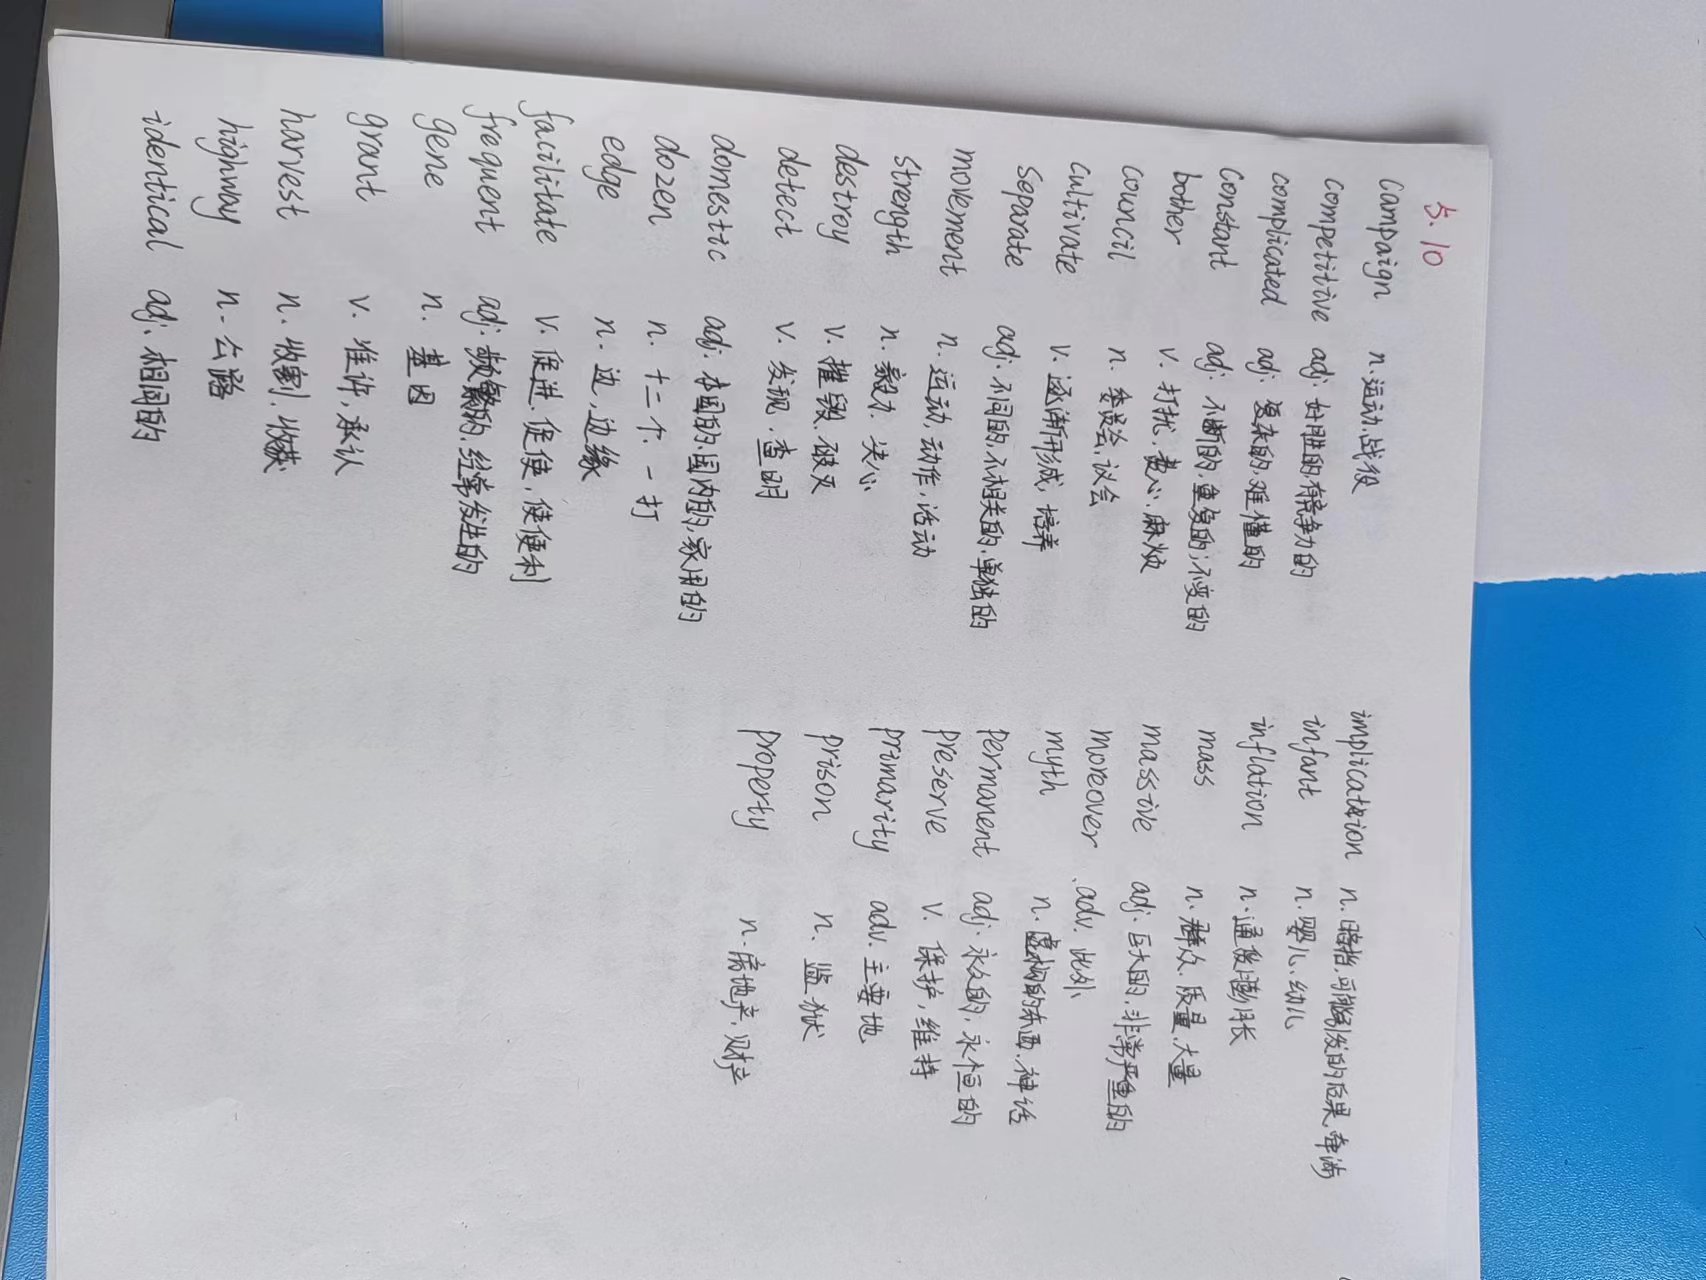 5.10
campaign n.运动.战役
competitive adj.好胜的,有竞争力的
complicated adj.复杂的,难懂的
constant adj.不断的,重复的;不变的
bother v.打扰.费心.麻烦
council n.委员会,议会
cultivate v.逐渐形成,培养
separate adj.不同的,不相关的,单独的
movement n.运动,动作,活动
strength n.毅力.决心
destroy v.摧毁.破灭
detect v.发现.查明
domestic adj.本国的.国内的,家用的
dozen n.十二个.一打
edge n.边,边缘
facilitate v.促进.促使,使便利
frequent adj.频繁的.经常发生的
gene n.基因
grant v.准许,承认
harvest n.收割.收获
highway n.公路
identical adj.相同的
implication n.暗指,可能引发的后果,牵涉
infant n.婴儿.幼儿
inflation n.通货膨胀
mass n.群众.质量.大量
massive adj.巨大的,非常严重的
moreover adv.此外
myth n.虚构的东西.神话
permanent adj.永久的,永恒的
preserve v.保护,维持
primarity adv.主要地
prison n.监狱
property n.房地产,财产